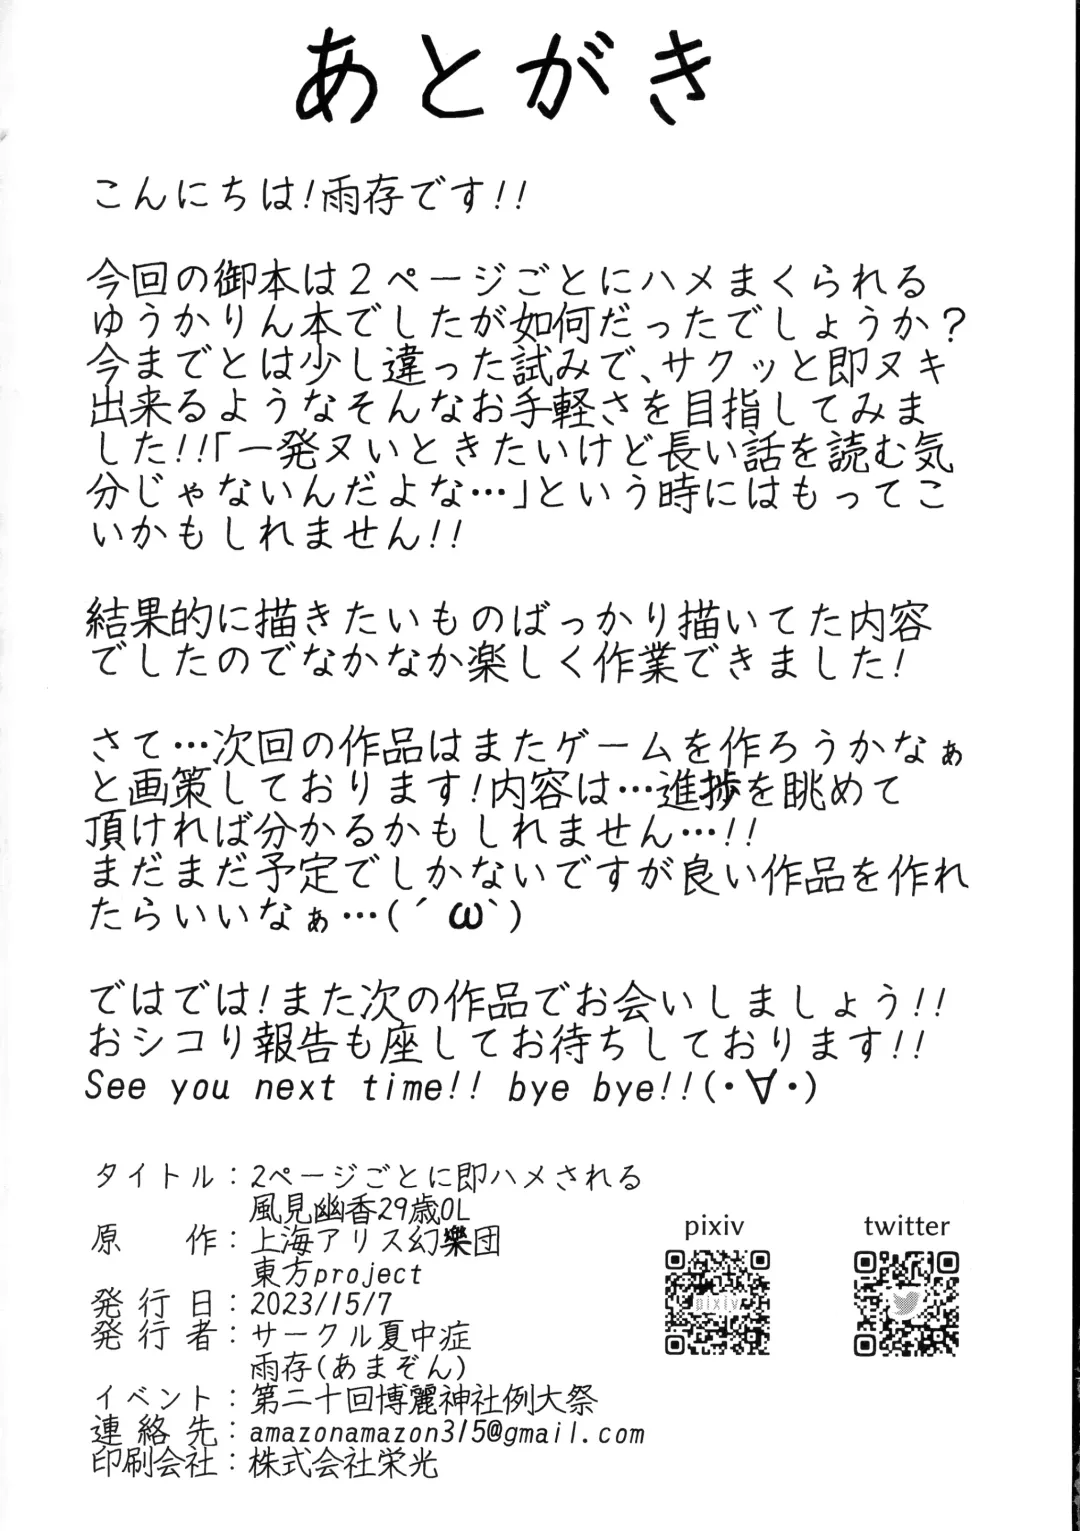 あとがき
こんにちは!雨存です!!
今回の御本は2ページごとにハメまくられる
ゆうかりん本でしたが如何だったでしょうか?
今までとは少し違った試みで、サクッと即ヌキ
出来るようなそんなお手軽さを目指してみま
した!!「一発ヌいときたいけど長い話を読む気
分じゃないんだよな…」という時にはもってこ
いかもしれません!!
結果的に描きたいものばっかり描いてた内容
でしたのでなかなか楽しく作業できました!
さて…次回の作品はまたゲームを作ろうかなぁ
と画策しております!内容は…進捗を眺めて
頂ければ分かるかもしれません…!!
まだまだ予定でしかないですが良い作品を作れ
たらいいなぁ…(´ω`)
ではでは!また次の作品でお会いしましょう!!
おシコり報告も座してお待ちしております!!
See you next time!! bye bye!!(・∀・)
タイトル:2ページごとに即ハメされる
風見幽香29歳OL
原 作:上海アリス幻樂団
東方project
発行日:2023/15/7
発行者:サークル夏中症
雨存(あまぞん)
イベント:第二十回博麗神社例大祭
連絡先:amazonamazon315@gmail.com
印刷会社:株式会社栄光
pixiv
twitter
pixiv